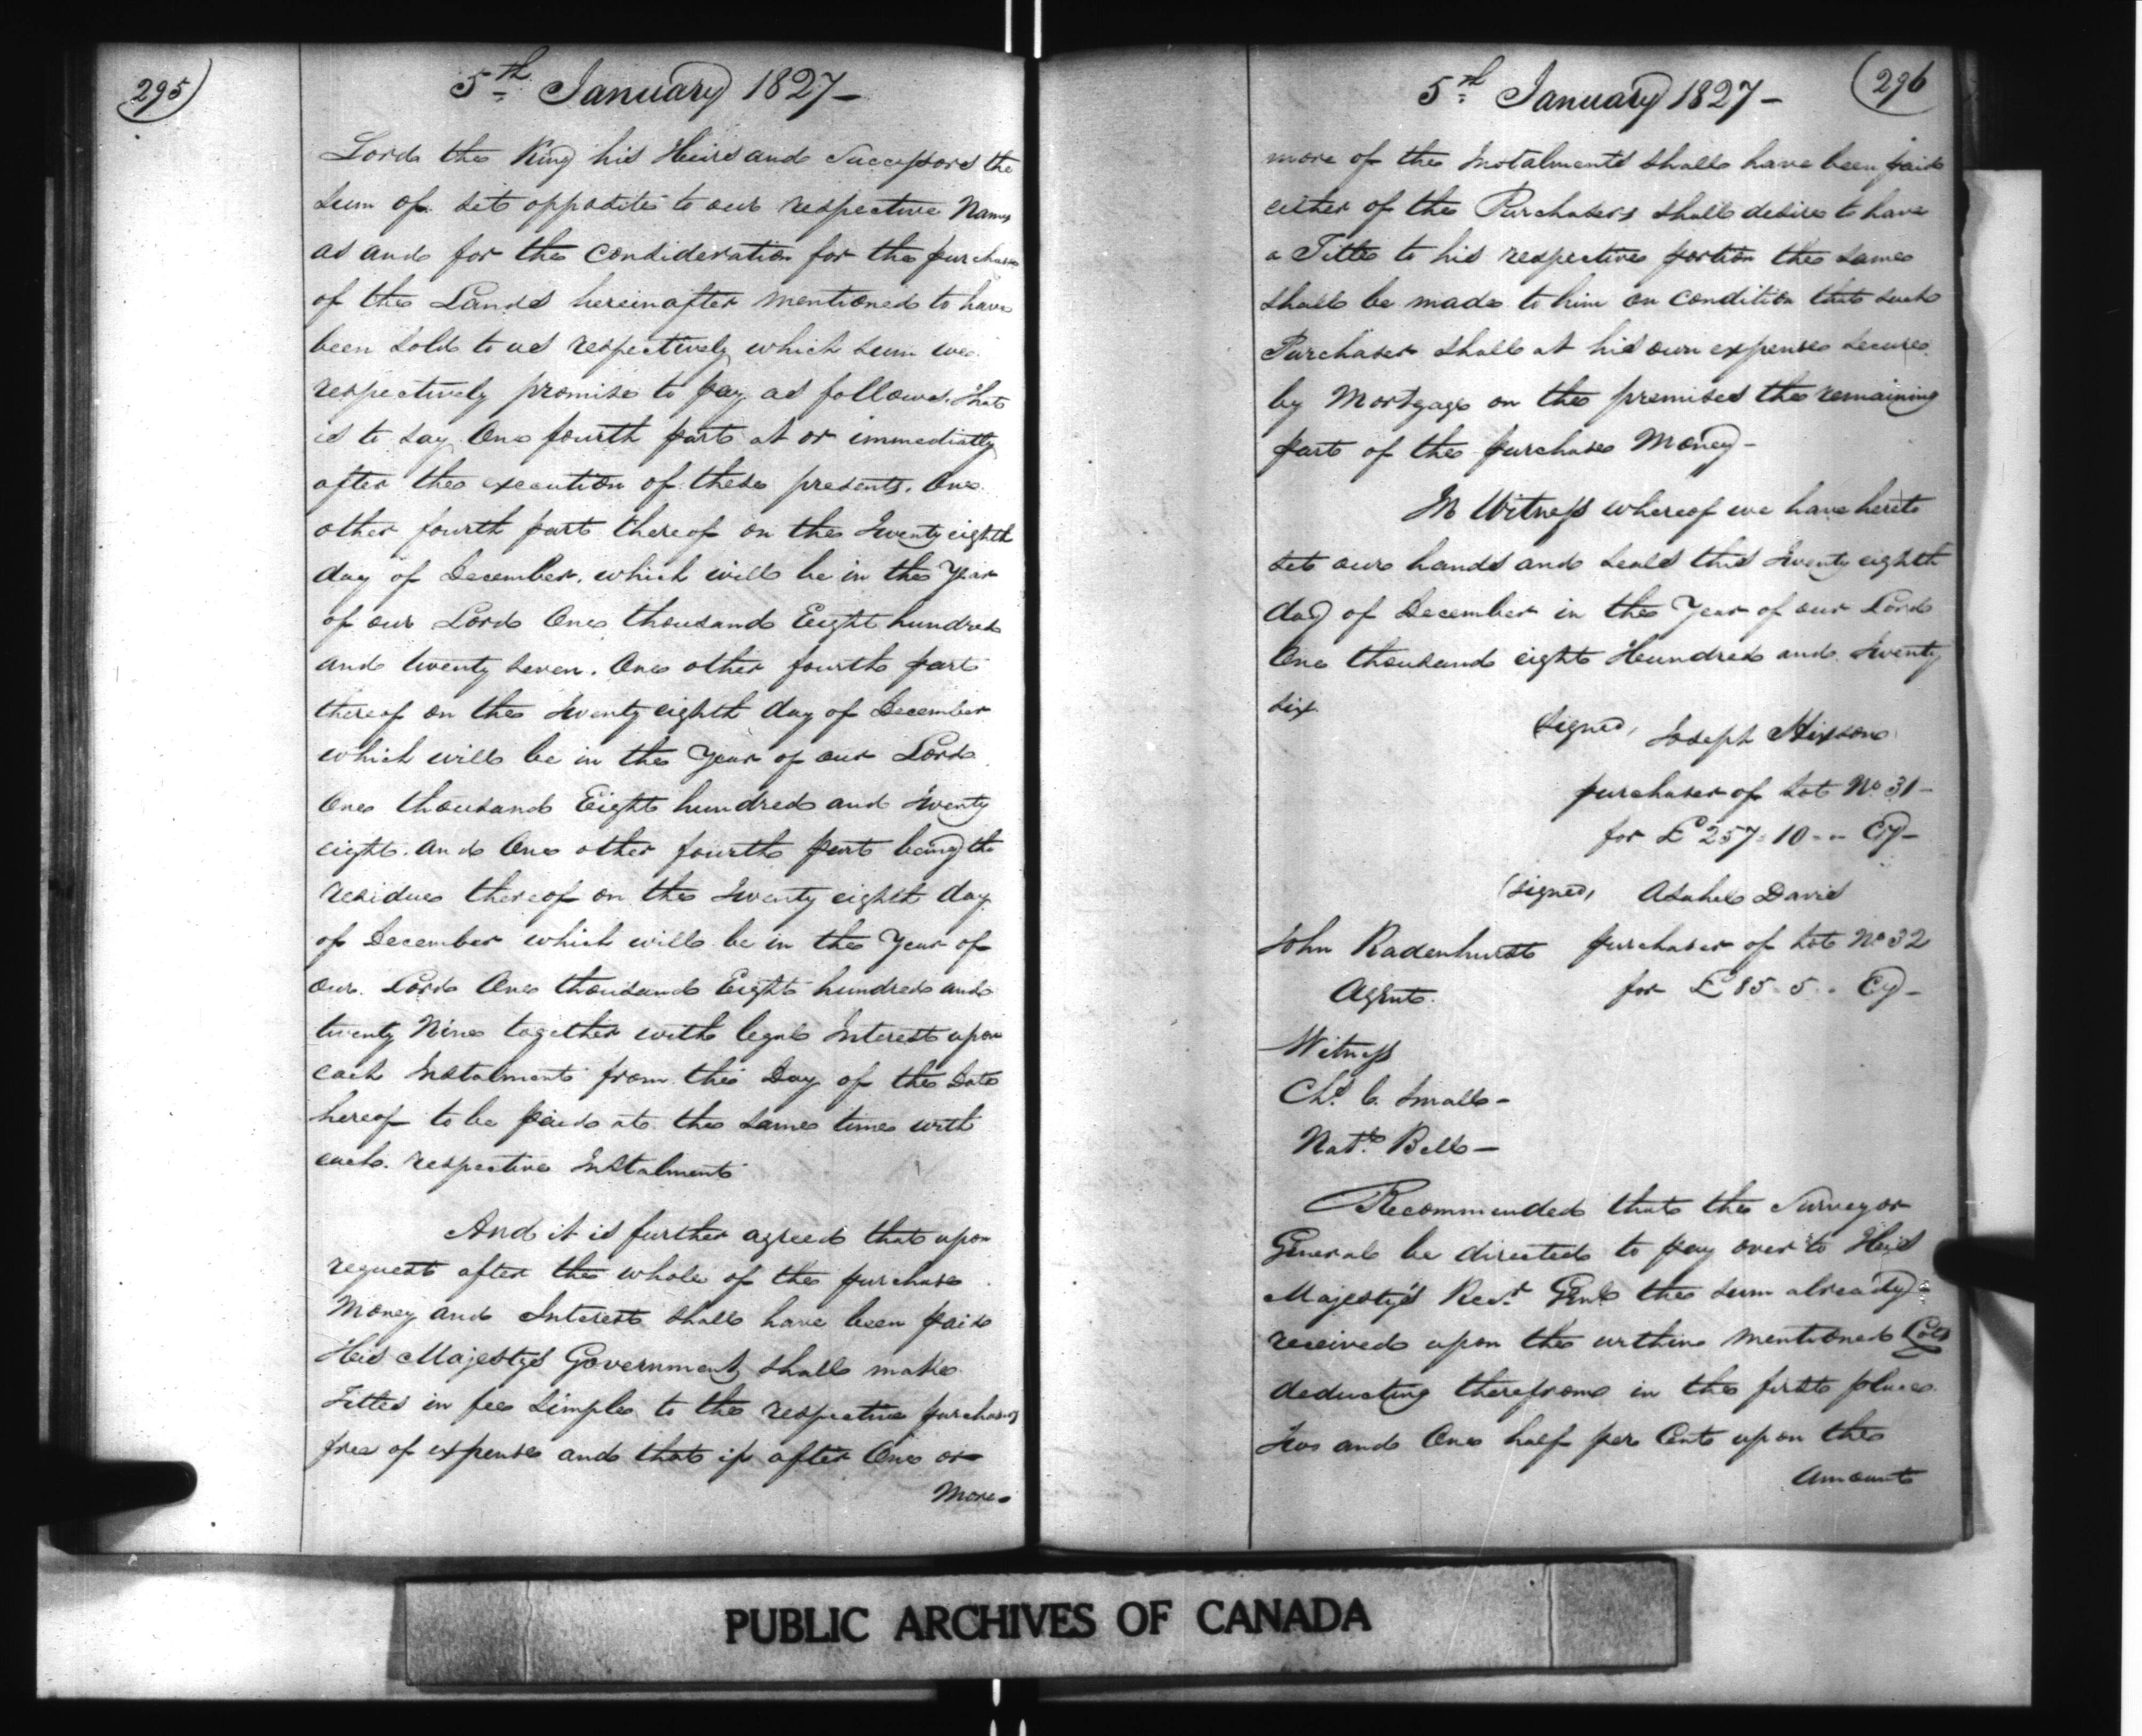 295
5th January 1827 -
Lord the King his Heirs and Successors the
Sum of set opposite to our respective Names
as and for the Consideration for the purchase
of the Lands hereinafter mentioned to have
been sold to us respectively which sum we
respectively promise to pay as follows. that
is to say One fourth part at or immediatly
after the execution of these presents. One
other fourth part thereof on the Twenty eighth
day of December. which will be in the Year
of our Lord One thousand Eight hundred
and twenty seven. One other fourth part
thereof on the Twenty eighth day of December
which will be in the Year of our Lord
One thousand Eight hundred and Twenty
eight. and One other fourth part being the
residue thereof on the Twenty eighth day
of December which will be in the Year of
our Lord One thousand Eight hundred and
twenty Nine together with legal Interest upon
each Instalment from this Day of the Date
hereof to be paid at the same times with
each respective Instalment
And it is further agreed that upon
request after the whole of the purchase
Money and Interest shall have been paid
His Majestys Government shall make
Titles in fee Simple to the respective purchasers
free of expense and that if after One or
More
296
5th January 1827 -
more of the Instalments shall have been paid
either of the Purchasers shall desire to have
a Title to his respective portion the same
shall be made to him on condition that such
Purchaser shall at his own expense secure
by Mortgage on the premises the remaining
part of the purchase Money -
In Witness whereof we have hereto
set our hands and seals this Twenty eighth
day of December in the Year of our Lord
One thousand eight Hundred and Twenty
six
(signed, Joseph Hixson
purchaser of Lot No 31 -
for £257. 10 - - Cy -
(signed, Asahel Davis
John Radenhurst purchaser of Lot No 32
Agent. for £85. 5 - . Cy -
Witness
Chs. C. Small -
Natl. Bell -
Recommended that the Surveyor
General be directed to pay over to His
Majesty's Recr. Genl the sum already
received upon the within mentioned Lots
deducting therefrom in the first place
Two and One half per Cent upon the
Amount
PUBLIC ARCHIVES OF CANADA